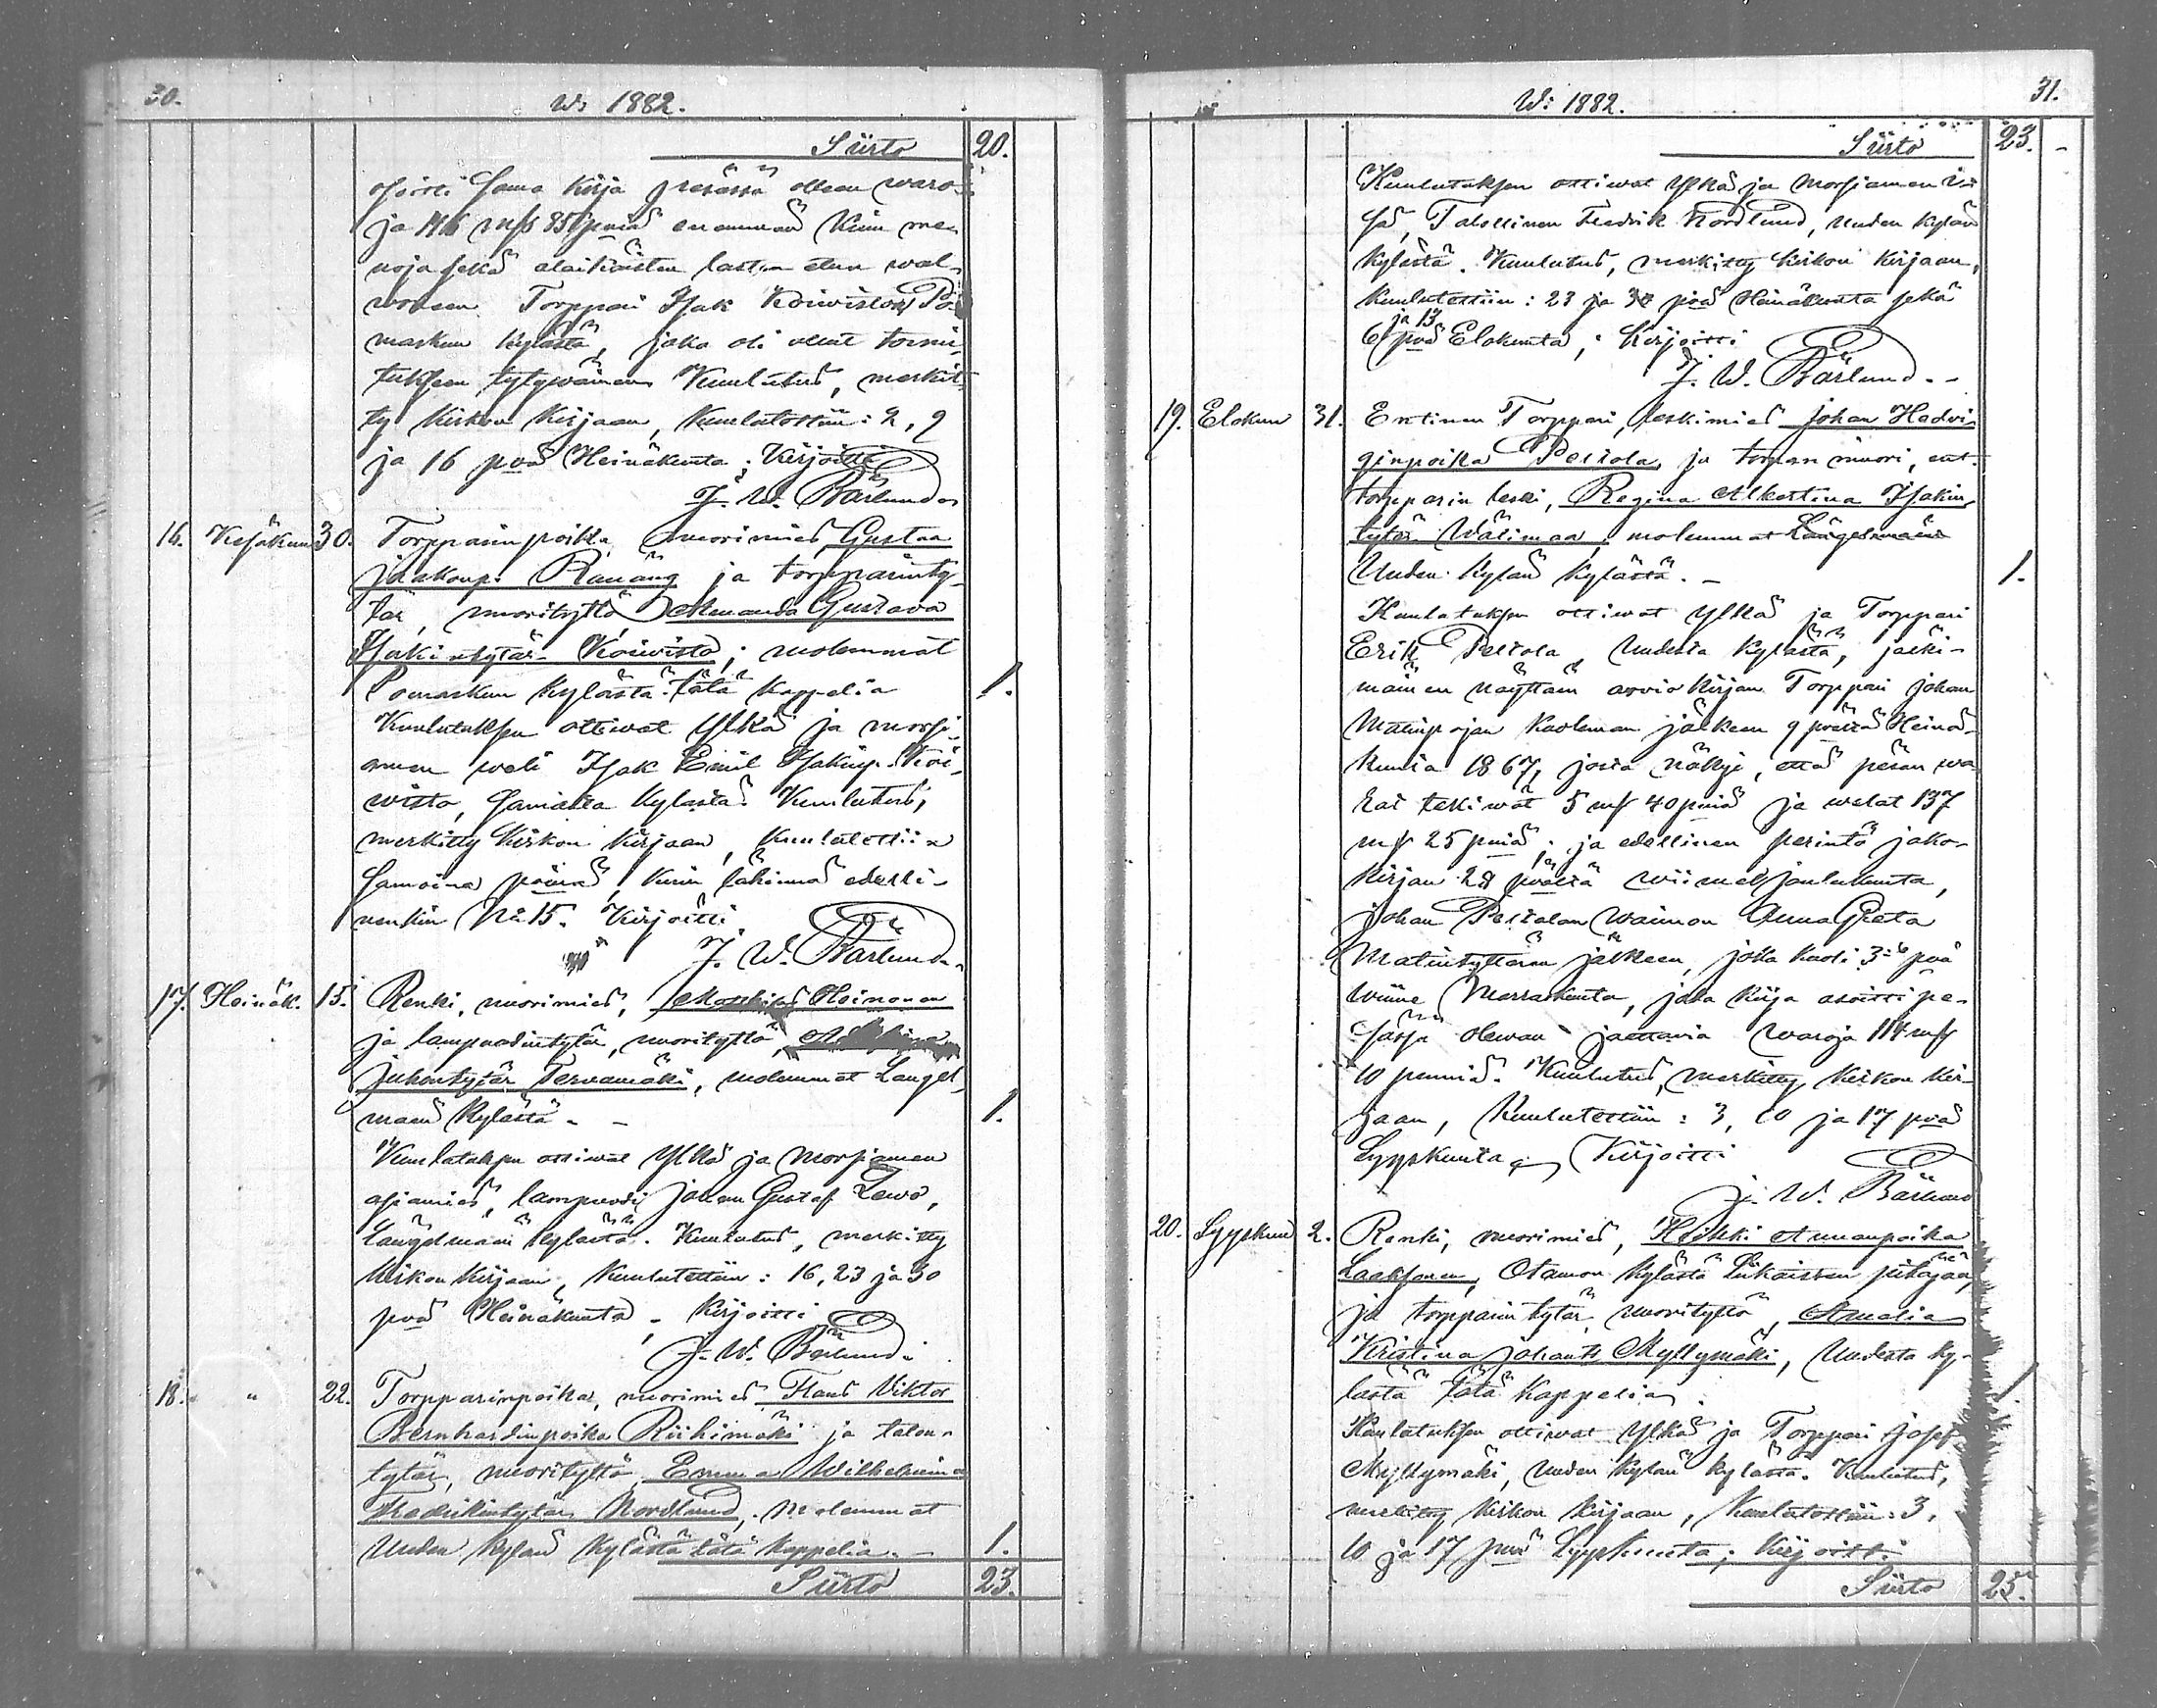 30.
W: 1882.
Siirto 20.
osoitti sama kirja pesässä olleen waro-
ja 1416 mk 85 pniä enemmän kuin me-
noja sekä alaikäisten lasten etun wal-
wojan Torppari Isak Koiwiston Po-
markun kylästä, joka oli ollut toimi-
tukseen tytywäinen. Kuulutus, merkit-
ty kirkon kirjaan, kuulutettiin: 2, 9
ja 16 pvä Heinäkuuta; Kirjoitti
J. W. Bärlund
16. Kesäkuun 30. Torpparinpoika, nuorimies, Gustaa
Jaakonp. Ranäng ja torpparinty-
tär, nuorityttö, Amanda Gustava
Isakintytär Koiwisto; molemmat
Pomarkun kylästä tätä kappelia 1.
Kuulutuksen ottiwat ylkä ja morsi-
amen weli Isak Emil Isakinp. Koi-
wisto, samasta kylästä. Kuulutus,
merkitty kirkon kirjaan, kuulutettiin
samoina päivinä, kuin lähinnä edelli-
nenkin No 15. Kirjoitti
J. W. Bärlund.
17. Heinäk. 15. Renki, nuorimies, Heinonen
ja lampuodintytär, nuorityttö,
Juhontytär Tervamäki, molemmat Längel-
mään kylästä. - 1.
Kuulutuksen ottiwat ylkä ja morsiamen
asiamies, lampuodi Johan Gustaf Lewo,
Längelmään kylästä. Kuulutus, merkitty
kirkon kirjaan, kuulutettiin: 16, 23 ja 30
pvä Heinäkuuta. Kirjoitti
J. W. Bärlund.
18. " 22. Torpparinpoika, nuorimies Frans Viktor
Bernhardinpoika Riihimäki ja talon-
tytär, nuorityttö, Emma Wilhelmina
Fredrikintytär Nordlund, molemmat
Uuden kylän kylästä tätä kappelia. - 1.
Siirto 23.
W: 1882. 31.
Siirto 23. -
Kuulutuksen ottiwat ylkä ja morsiamen i-
sä, Talollinen Fredrik Nordlund, Uuden kylän
kylästä. Kuulutus, merkitty kirkon kirjaan,
kuulutettiin: 23 ja 30 pvä Heinäkuuta sekä
6 ja 13 pvä Elokuuta; Kirjoitti
J. W. Bärlund. -
19. Elokuun 31. Entinen Torppari, leskimies Johan Hedwi-
ginpoika Peltola, ja torpan muori, ent.
torpparin leski, Regina Albertina Isakin-
tytär Wälimaa; molemmat Längelmään
Uuden kylän kylästä. - 1.
Kuulutuksen ottiwat ylkä ja Torppari
Erik Peltola, Uudesta kylästä, jälki-
mäinen näyttäin arvio kirjan Torppari Johan
Matinpojan kuoleman jälkeen 9 pvältä Heinä-
kuuta 1867, josta näkyi, että pesän wa-
rat tekiwät 5 mk 40 pniä ja welat 137
mk 25 pniä; ja edellinen perintö jako-
kirjan 28 pvältä wiimeis Joulukuuta,
Johan Peltolan waimon Anna Greta
Matintyttären jälkeen, joka kuoli 3 pvä
wiime Marraskuuta, joka kirja osoitti pe-
sässä olewan jaettavia waroja 114 mk
10 penniä. Kuulutus, merkitty kirkon kir-
jaan, kuulutettiin: 3, 10 ja 17 pvä
Syyskuuta; Kirjoitti
J. W. Bärlund
20. Syyskuun 2. Renki, nuorimies, Heikki Annanpoika
Laaksonen, Otamon kylästä Siikaisten pitäjää,
ja torpparin tytär, nuorityttö, Amalia
Kristina Johant. Myllymäki, Uudesta ky-
lästä tätä kappelia. 1.
Kuulutuksen ottiwat ylkä ja Torppari Josef
Myllymäki, Uuden kylän kylästä. Kuulutus,
merkitty kirkon kirjaan, kuulutettiin: 3,
10 ja 17 pvä Syyskuuta; Kirjoitti
Siirto 25.